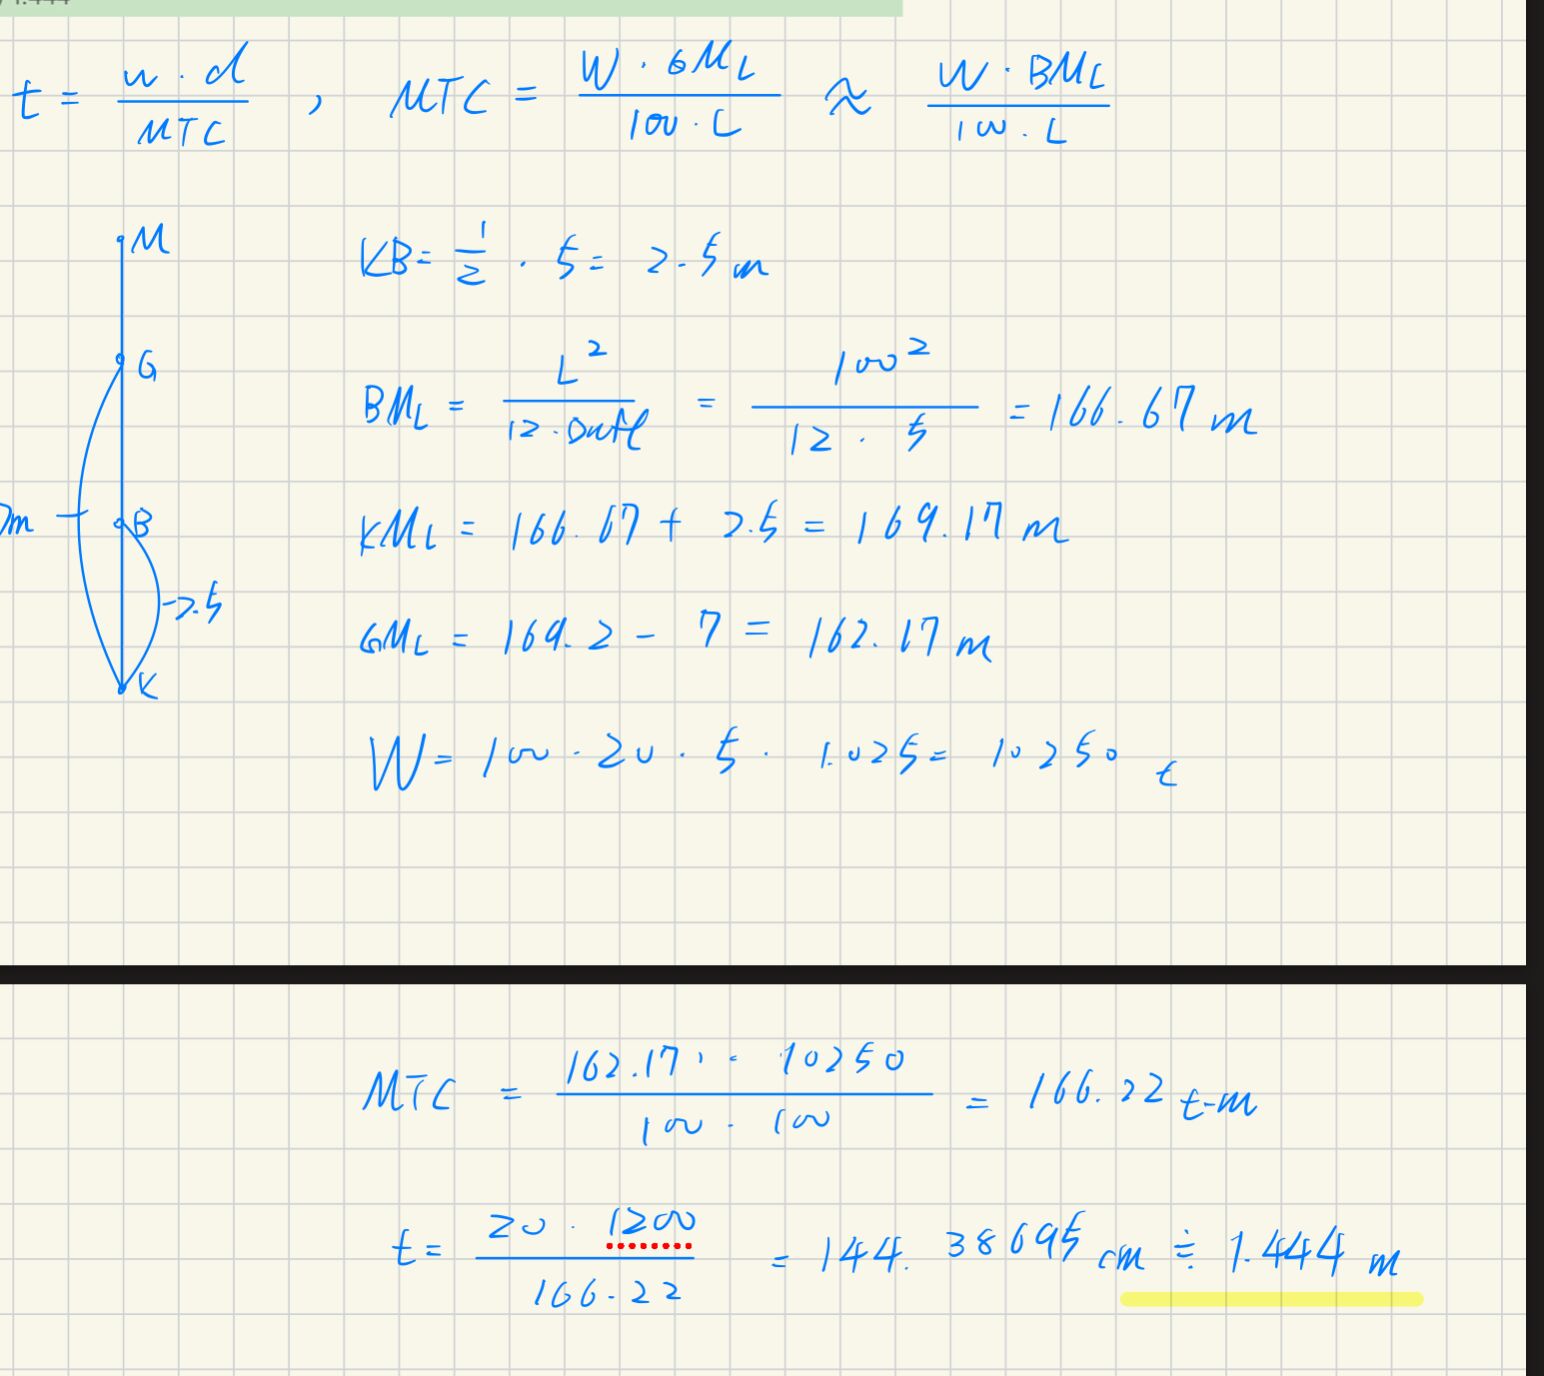 t = w · d / MTC , MTC = W · GM_L / 100 · L ≈ W · BM_L / 100 · L
M
KB = 1/2 · 5 = 2.5 m
G
BM_L = L² / 12 · Draft = 100² / 12 · 5 = 166.67 m
m
B
KM_L = 166.67 + 2.5 = 169.17 m
2.5
GM_L = 169.2 - 7 = 162.17 m
K
W = 100 · 20 · 5 · 1.025 = 10250 t
MTC = 162.17 · 10250 / 100 · 100 = 166.22 t-m
t = 20 · 1200 / 166.22 = 144.38695 cm ≒ 1.444 m